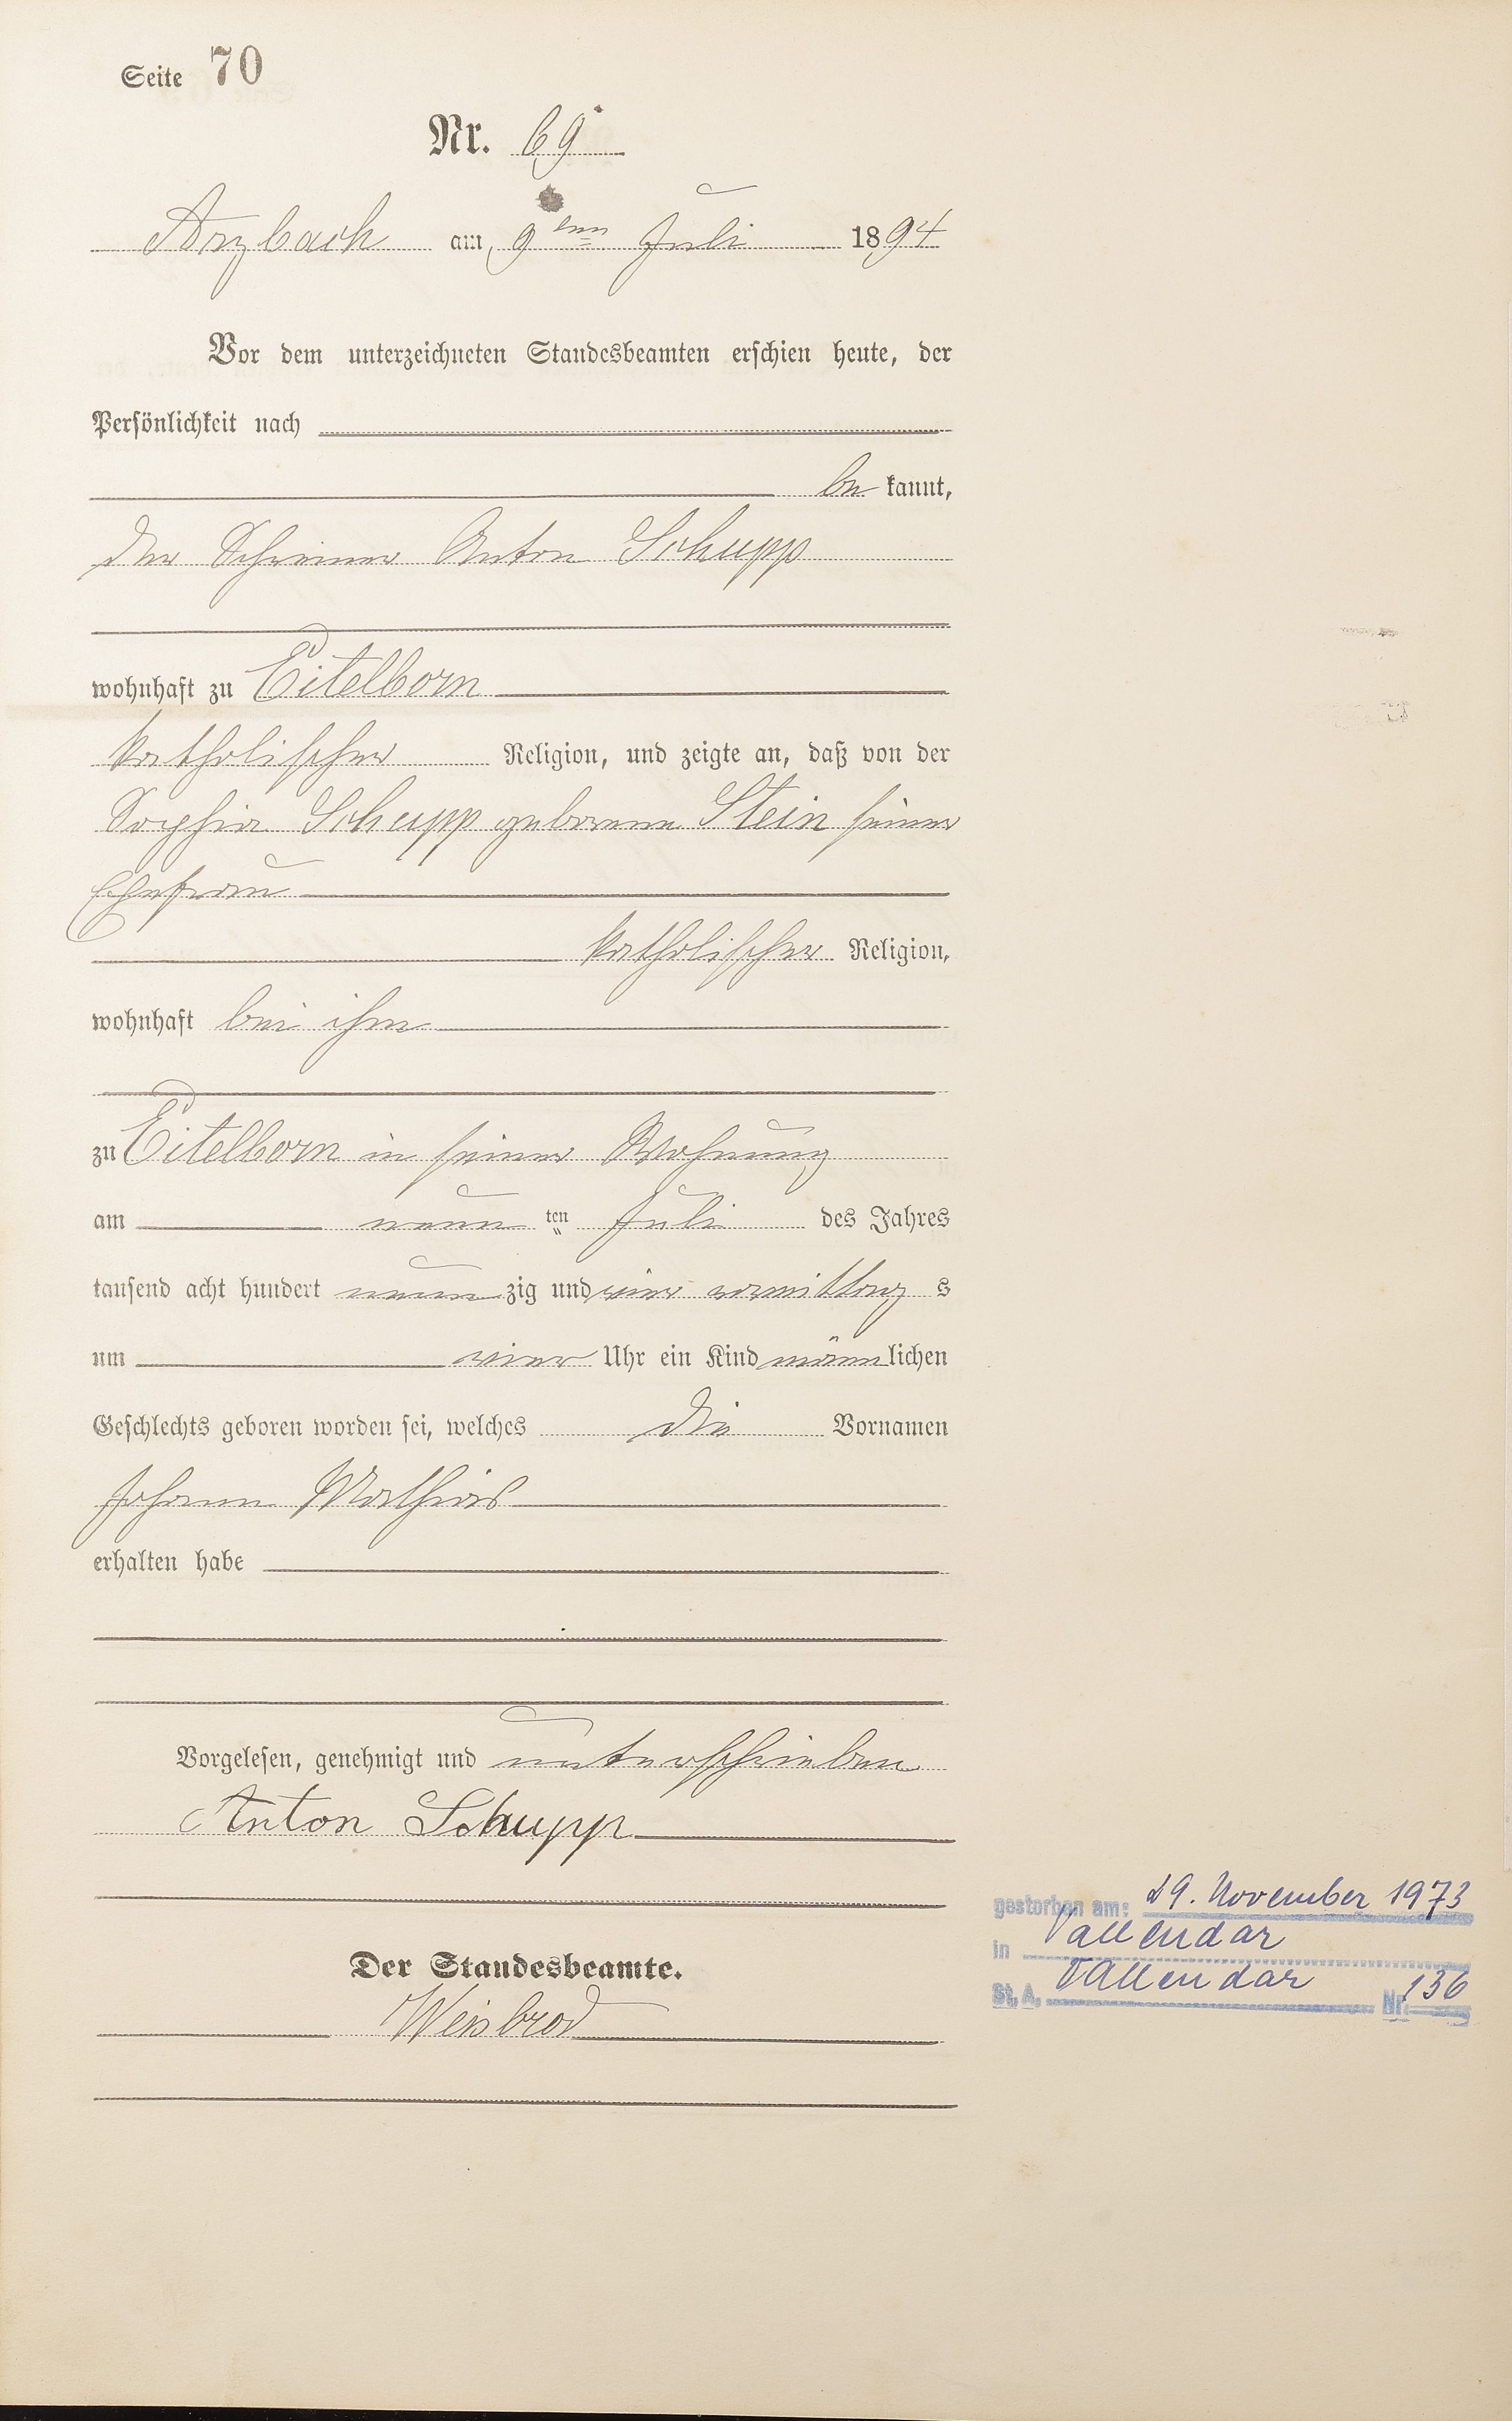 Seite 70
Nr. 69
Arzbach am 9ten Juli 1894
Vor dem unterzeichneten Standesbeamten erschien heute, der
Persönlichkeit nach
be kannt,
der Schreiner Anton Schupp
wohnhaft zu Eitelborn
katholischer Religion, und zeigte an, daß von der
Sophia Schupp geborene Stein seiner
Ehefrau
katholischer Religion,
wohnhaft bei ihm
zu Eitelborn in seiner Wohnung
am neun ten Juli des Jahres
tausend acht hundert neun zig und vier vormittag s
um vier Uhr ein Kind männ lichen
Geschlechts geboren worden sei, welches die Vornamen
Johann Mathias
erhalten habe
Vorgelesen, genehmigt und unterschrieben
Anton Schupp
Der Standesbeamte.
Weisbrod
gestorben am: 29. November 1973
in Vallendar
St. A. Vallendar Nr. 136